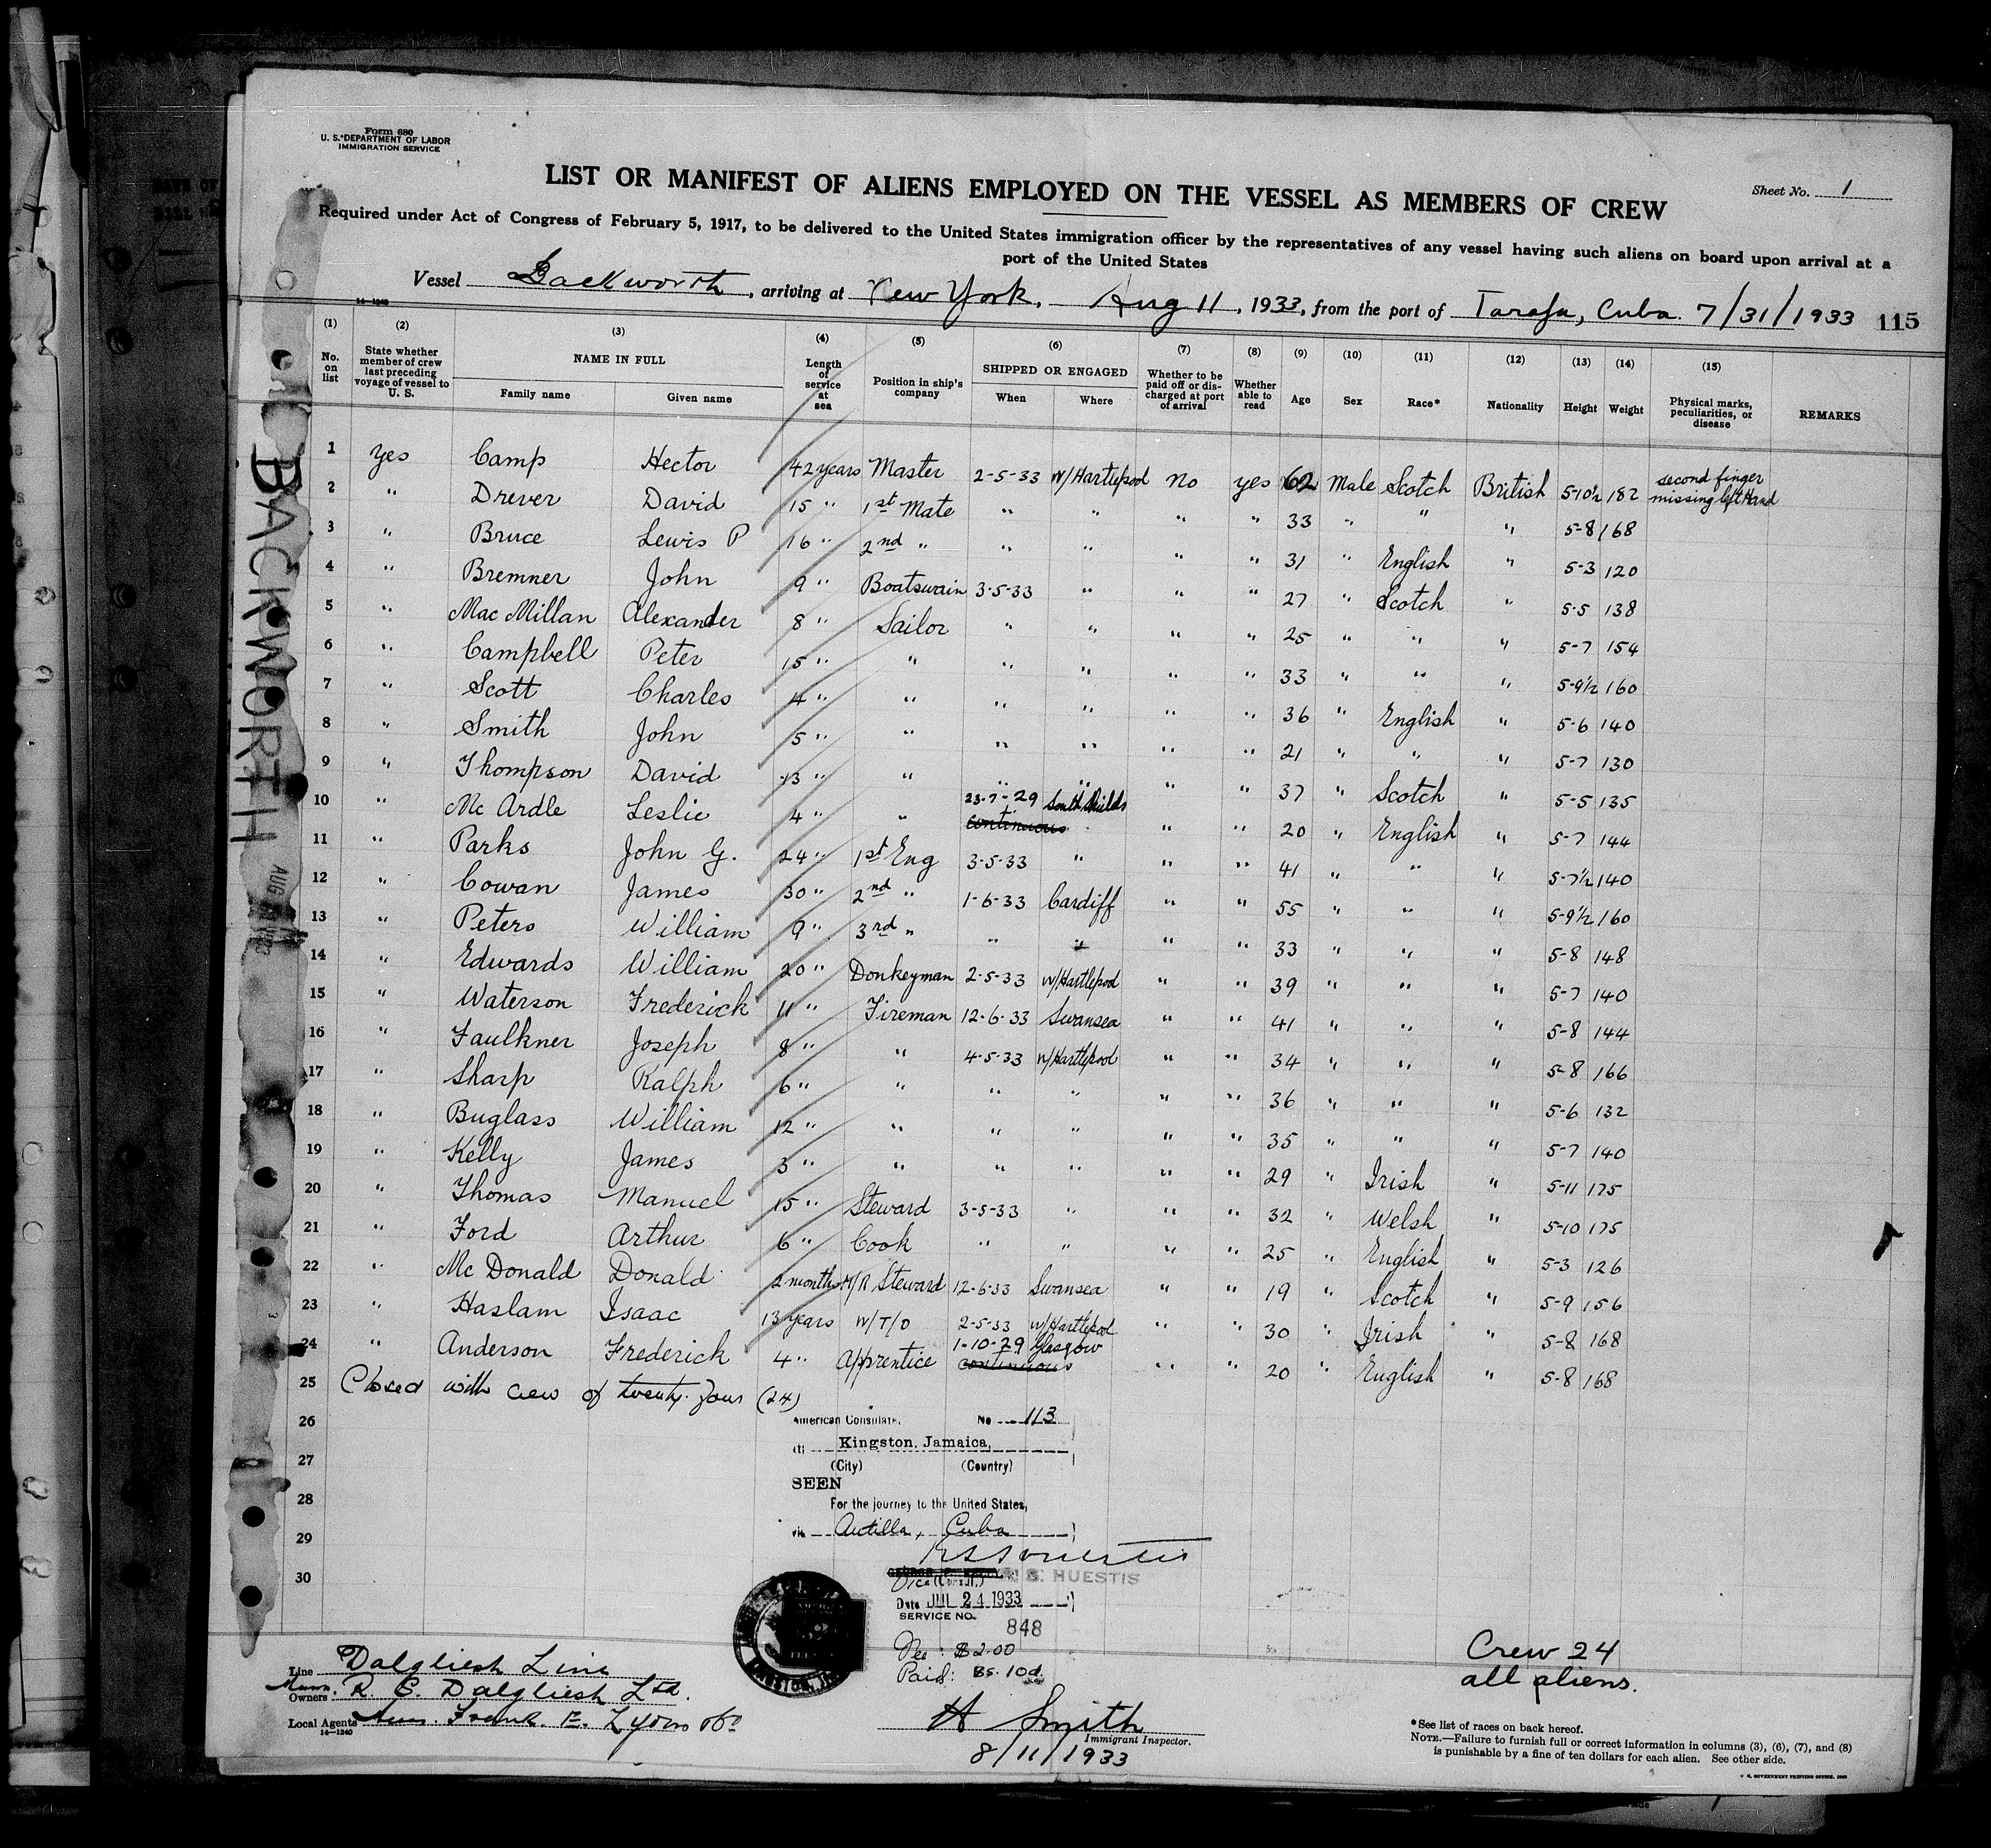 Form 680
U. S. DEPARTMENT OF LABOR
IMMIGRATION SERVICE
Sheet No. 1
LIST OR MANIFEST OF ALIENS EMPLOYED ON THE VESSEL AS MEMBERS OF CREW
Required under Act of Congress of February 5, 1917, to be delivered to the United States immigration officer by the representatives of any vessel having such aliens on board upon arrival at a
port of the United States
Vessel Backworth, arriving at New York, Aug 11, 1933, from the port of Tarafa, Cuba. 7/31/1933 115
14-1240
(1) No. on list (2) State whether member of crew last preceding voyage of vessel to U. S. (3) NAME IN FULL Family name Given name (4) Length of service at sea (5) Position in ship's company (6) SHIPPED OR ENGAGED When Where (7) Whether to be paid off or discharged at port of arrival (8) Whether able to read (9) Age (10) Sex (11) Race* (12) Nationality (13) Height (14) Weight (15) Physical marks, peculiarities, or disease REMARKS
1 yes Camp Hector 42 years Master 2-5-33 W/Hartlepool No yes 62 Male Scotch British 5-10½ 182 second finger missing left Hand
2 " Drever David 15 " 1st Mate " " " " 33 " " " 5-8 168
3 " Bruce Lewis P 16 " 2nd " " " " " 31 " English " 5-3 120
4 " Bremner John 9 " Boatswain 3-5-33 " " " 27 " Scotch " 5-5 138
5 " Mac Millan Alexander 8 " Sailor " " " " 25 " " " 5-7 154
6 " Campbell Peter 15 " " " " " " 33 " " " 5-9½ 160
7 " Scott Charles 4 " " " " " " 36 " English " 5-6 140
8 " Smith John 5 " " " " " " 21 " " " 5-7 130
9 " Thompson David 13 " " " " " " 37 " Scotch " 5-5 135
10 " Mc Ardle Leslie 4 " " 23-7-29 South Shields continuous " " 20 " English " 5-7 144
11 " Parks John G. 24 " 1st Eng 3-5-33 " " " 41 " " " 5-7½ 140
12 " Cowan James 30 " 2nd " 1-6-33 Cardiff " " 55 " " " 5-9½ 160
13 " Peters William 9 " 3rd " " " " " 33 " " " 5-8 148
14 " Edwards William 20 " Donkeyman 2-5-33 W/Hartlepool " " 39 " " " 5-7 140
15 " Waterson Frederick 11 " Fireman 12-6-33 Swansea " " 41 " " " 5-8 144
16 " Faulkner Joseph 8 " " 4-5-33 W/Hartlepool " " 34 " " " 5-8 166
17 " Sharp Ralph 6 " " " " " " 36 " " " 5-6 132
18 " Buglass William 12 " " " " " " 35 " " " 5-7 140
19 " Kelly James 3 " " " " " " 29 " Irish " 5-11 175
20 " Thomas Manuel 15 " Steward 3-5-33 " " " 32 " Welsh " 5-10 175
21 " Ford Arthur 6 " Cook " " " " 25 " English " 5-3 126
22 " Mc Donald Donald 2 months M/R Steward 12-6-33 Swansea " " 19 " Scotch " 5-9 156
23 " Haslam Isaac 13 years W/T/O 2-5-33 W/Hartlepool " " 30 " Irish " 5-8 168
24 " Anderson Frederick 4 " Apprentice 1-10-29 Glasgow continuous " " 20 " English " 5-8 168
25 Closed with crew of twenty four (24)
26
27
28
29
30
American Consulate, No 113
at Kingston, Jamaica,
(City) (Country)
SEEN
For the journey to the United States,
via Antilla, Cuba
R. S. HUESTIS
Vice Consul
Date JUL 24 1933
SERVICE NO. 848
Fee: $2.00
Paid: 8s. 10d.
Crew 24
all aliens.
Line Dalgliesh Line
Owners R. S. Dalgliesh Ltd.
Local Agents Frank E. Lyons & Co
14-1240
H Smith
Immigrant Inspector.
8/11/1933
*See list of races on back hereof.
NOTE.—Failure to furnish full or correct information in columns (3), (6), (7), and (8)
is punishable by a fine of ten dollars for each alien. See other side.
U. S. GOVERNMENT PRINTING OFFICE
BACKWORTH